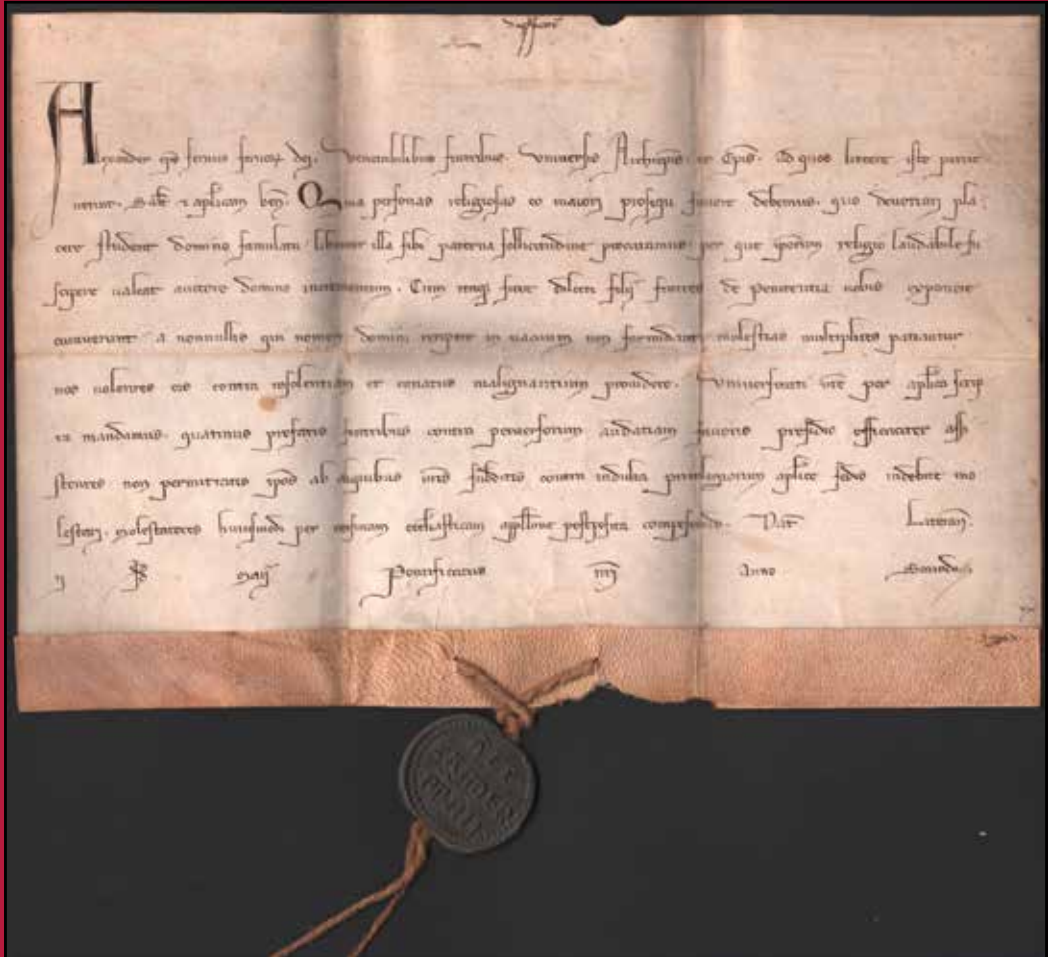 Alexander ep̄s seruus seruoꝝ dei. Venerabilibus fratribus. Vniuersis Archiep̄is et Ep̄is. ad quos littere iste perue
nerint. Salt̄ ⁊ aplicam ben̄. Quia personas religiosas eo maiori prosequi fauore debemus. quo deuotiori pla
cere student domino famulatu. libenter illa sibi paterna sollicitudine procuramus. per que ip̄orum religio laudabile su
scipere ualeat auctore domino incrementum. Cum itaqꝫ sicut dilecti filij fratres de Penitentia nobis exponere
curauerunt a nonnullis qui nomen domini recipere in uacuum non formidant molestias multiplices patiantur
nos uolentes eis contra insolentiam et conatus malignantium prouidere. Vniuersitati ur̄e per aplica scrip
ta mandamus. quatinus prefatis fratribus contra peruersorum audatiam fauoris presidio efficaciter assi
stentes non permittatis ip̄os ab aliquibus ur̄is subditis contra indulta priuilegiorum aplice sedis indebite mo
lestari. molestatores huiusmodi per censuram ecclesiasticam appellone postposita compescendo. Dat̄ Lateran̄.
Maij Pontificatus nr̄i Anno Secundo.
ALE
XANDER
PP IIII